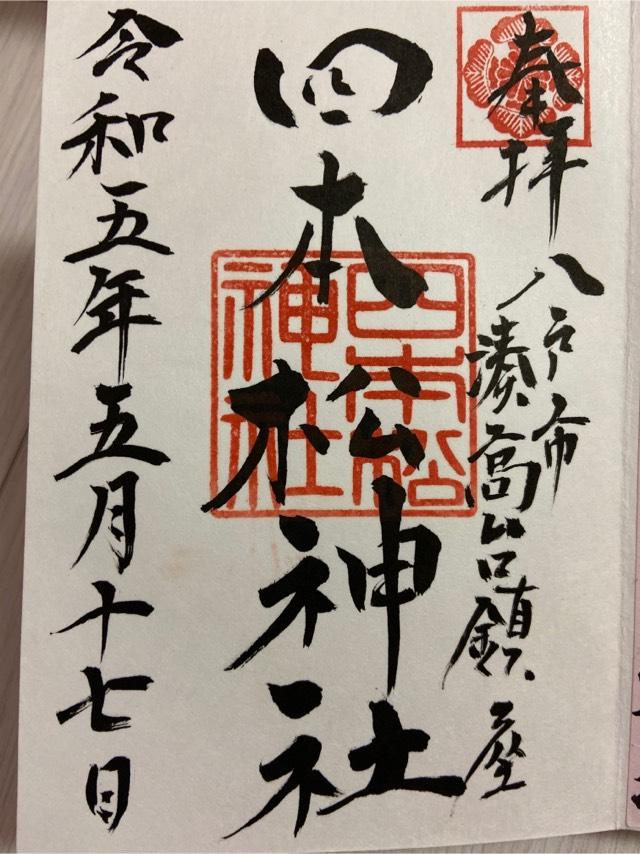 奉拝
八戸市
湊高台鎮座
四本松神社
四本松
神社
令和五年五月十七日